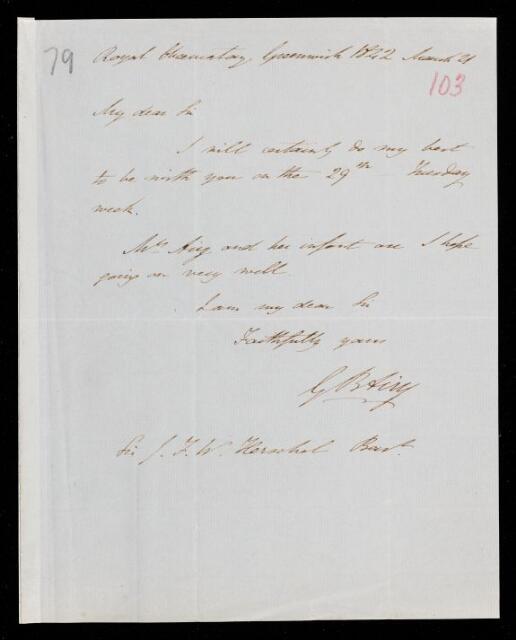 79
Royal Observatory, Greenwich 1842 March 21
103
My dear Sir
I will certainly do my best
to be with you on the 29th Tuesday
week.
Mrs Airy and her infant are I hope
going on very well
I am my dear Sir
Faithfully yours
G B Airy
Sir J. F. W. Herschel Bart.